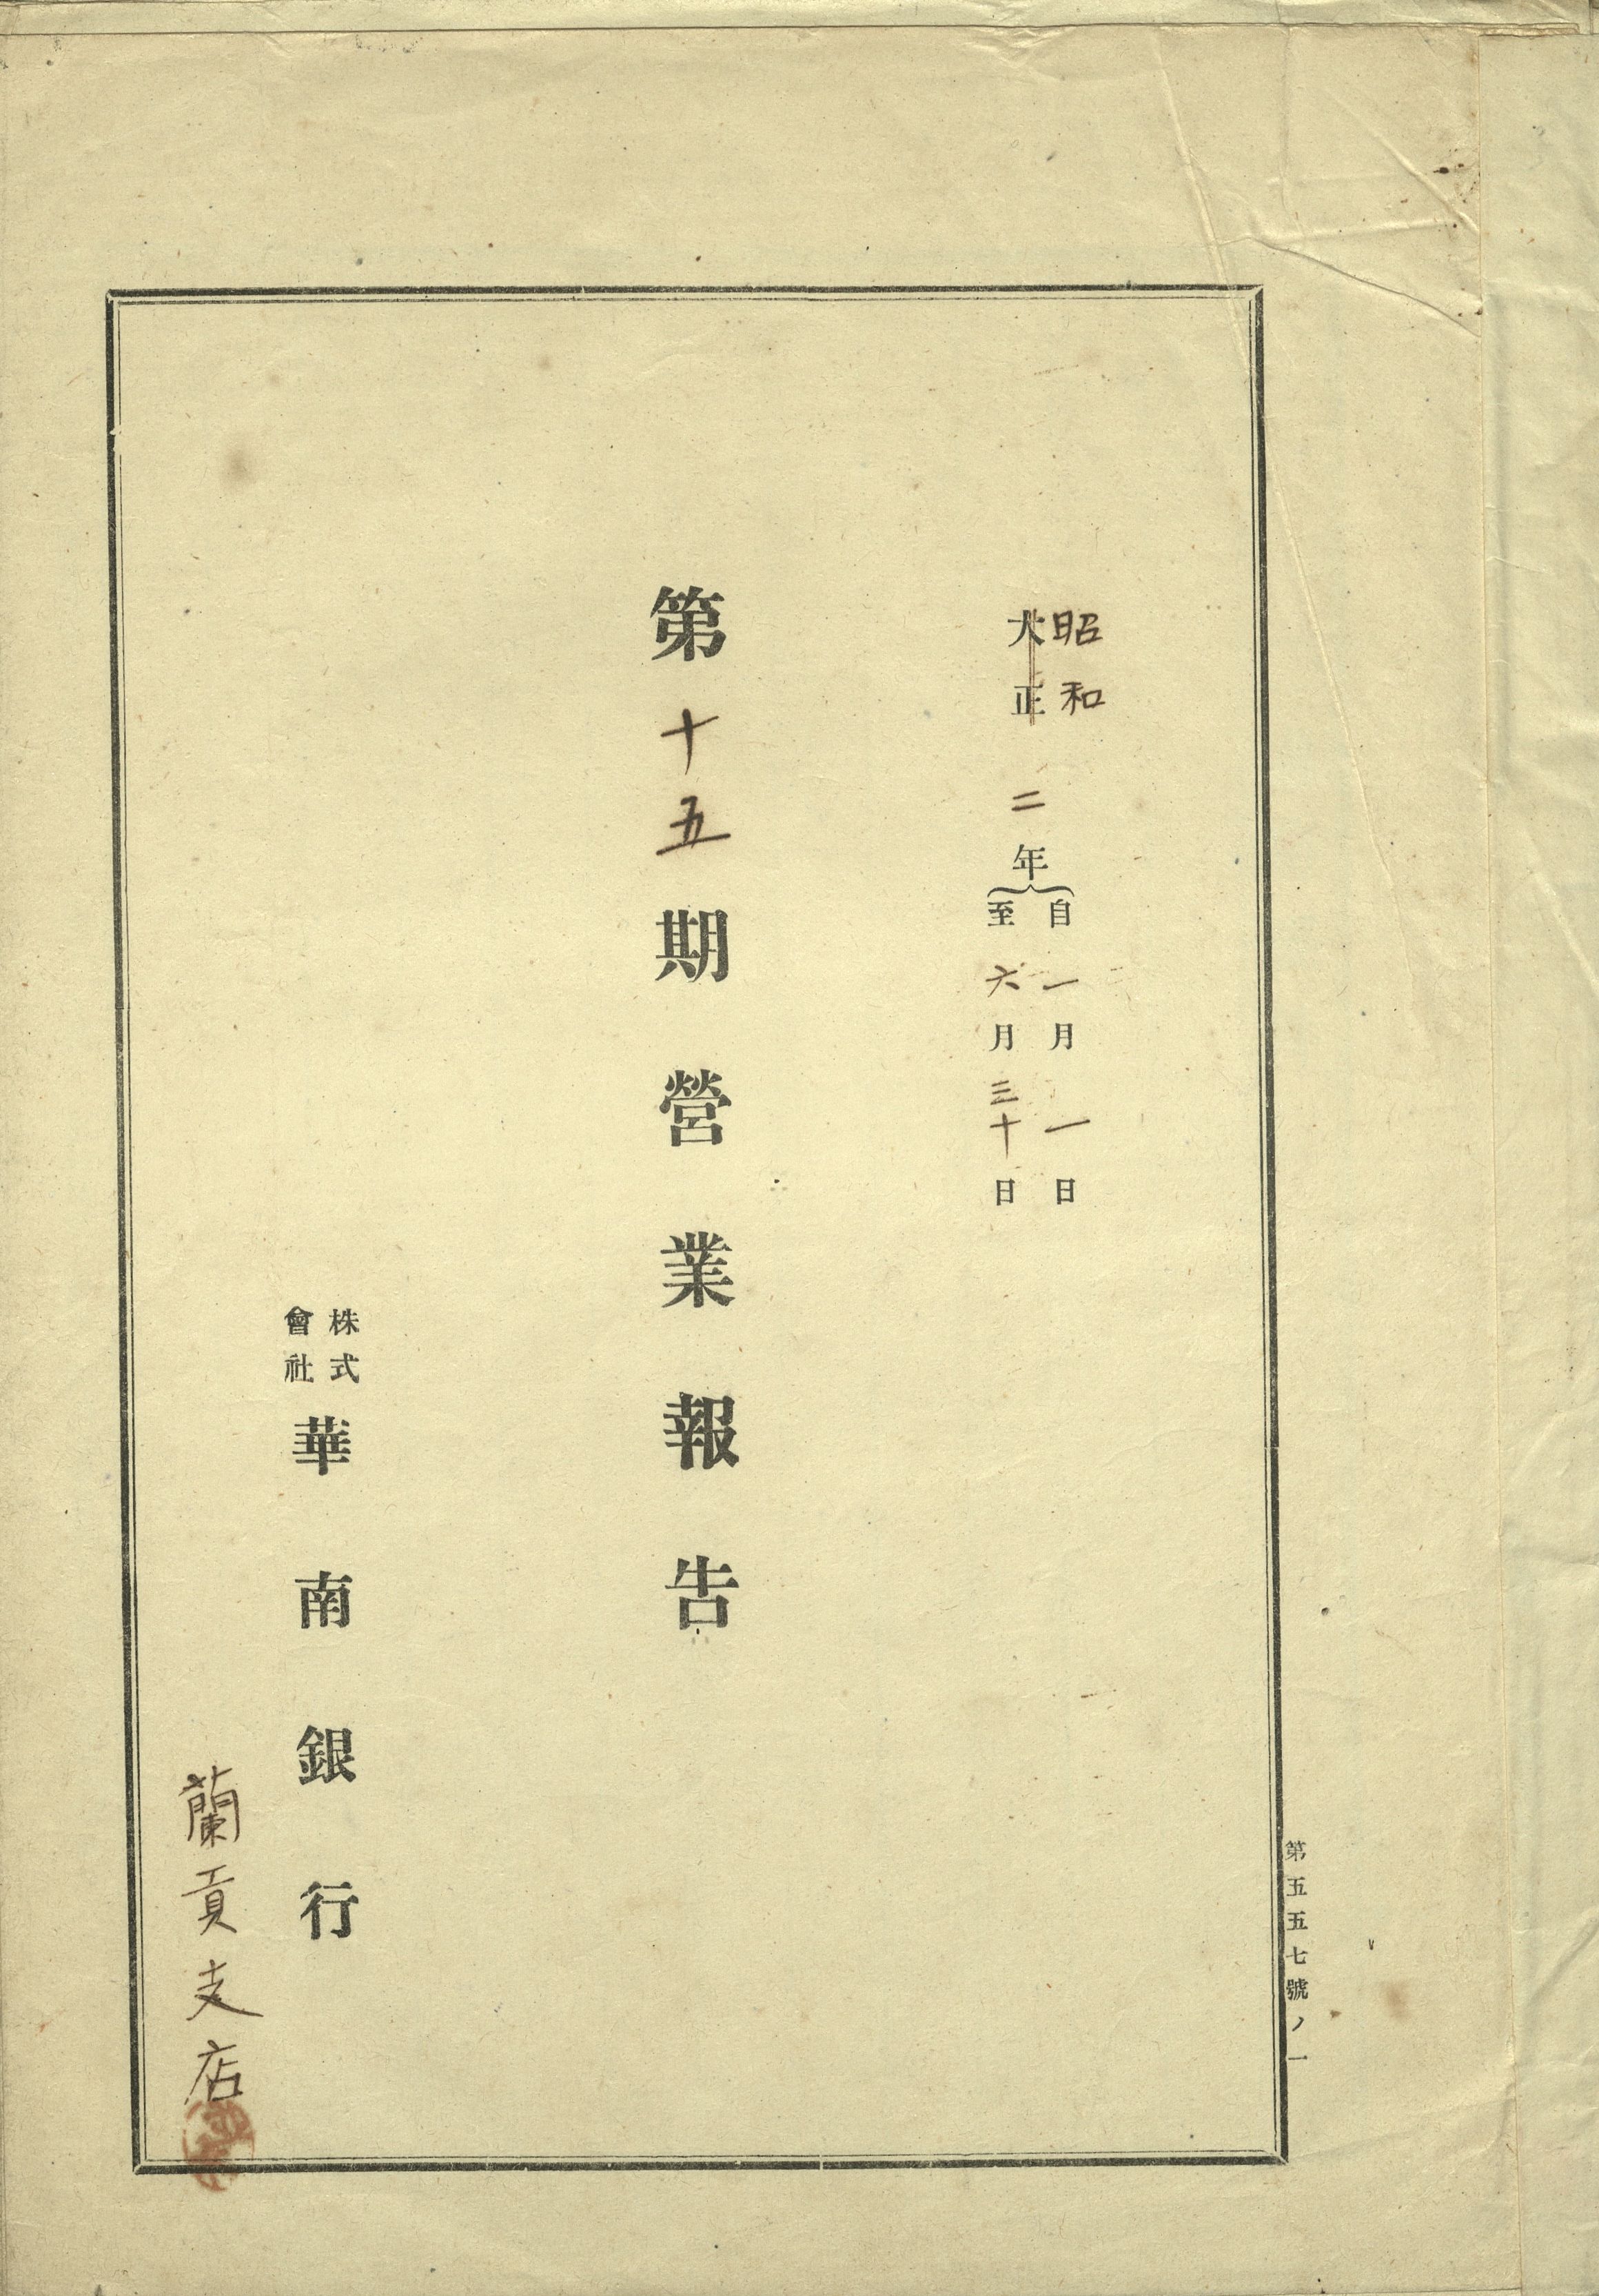 昭和
大正
二年
自一月一日
至六月三十日
第十五期營業報告
株式
會社
華南銀行
蘭貢支店
第五五七號ノ一